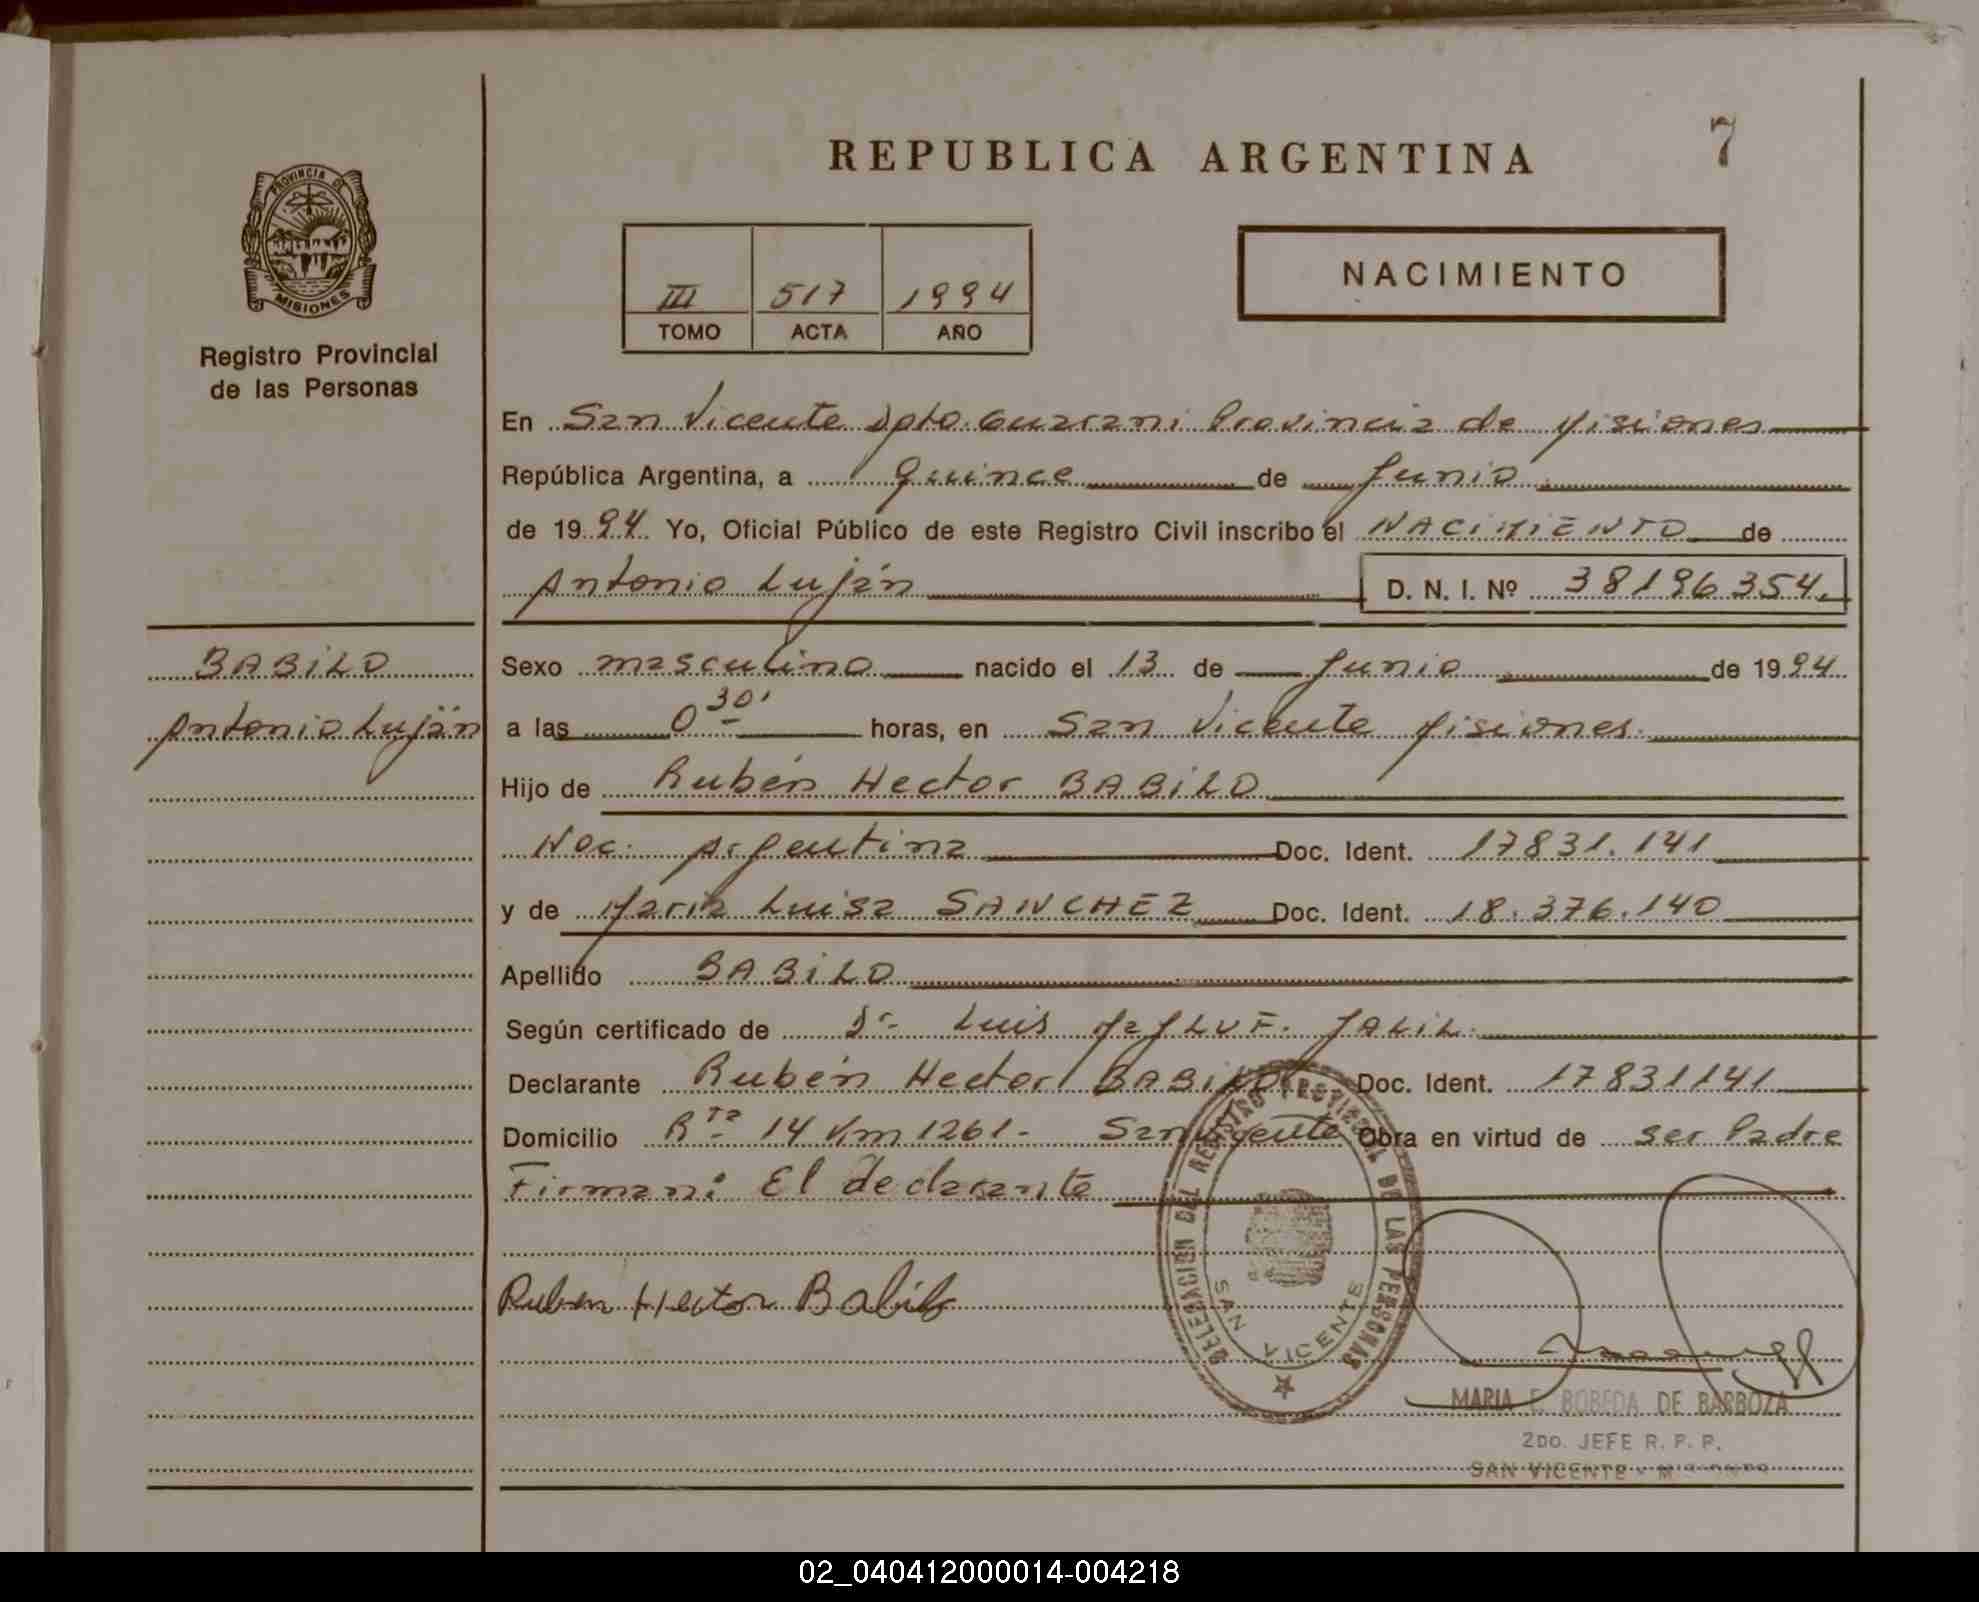 REPUBLICA ARGENTINA
7
PROVINCIA DE
MISIONES
Registro Provincial
de las Personas
III 517 1994
TOMO ACTA AÑO
NACIMIENTO
En San Vicente Dpto. Guarani Provincia de Misiones
República Argentina, a Quince de Junio
de 1994. Yo, Oficial Público de este Registro Civil inscribo el NACIMIENTO de
Antonio Luján D. N. I. Nº 38196354.
BABILO
Antonio Luján
Sexo masculino nacido el 13 de Junio de 1994
a las 0 30' horas, en San Vicente Misiones.
Hijo de Rubén Hector BABILO
Nac. Argentina Doc. Ident. 17831.141
y de Maria Luisa SANCHEZ Doc. Ident. 18.376.140
Apellido BABILO
Según certificado de Dr. Luis JALIL.
Declarante Rubén Hector BABILO Doc. Ident. 17831141
Domicilio Rta 14 Km 1261- San Vicente Obra en virtud de ser Padre
Firman: El declarante
Ruben Hector Babilo
DELEGACION DEL REGISTRO PROVINCIAL DE LAS PERSONAS
SAN VICENTE
MARIA E. BOBEDA DE BARBOZA
2DO. JEFE R. P. P.
SAN VICENTE - MISIONES
02_040412000014-004218